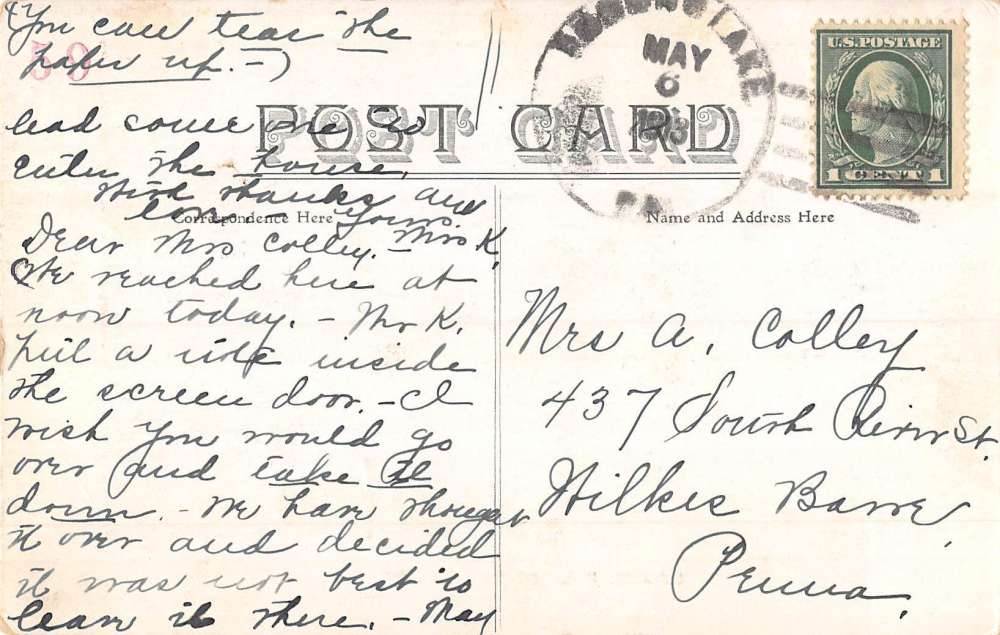 (You can tear the
paper up. -)
lead some one to
enter the house.
With thanks and
love. Yours
Mrs K.
POST CARD
MAY
6
PA
U.S. POSTAGE
1 CENT 1
Correspondence Here
Name and Address Here
Dear Mrs Colley. -
We reached here at
noon today. - Mr K.
put a note inside
the screen door. - I
wish you would go
over and take it
down. - We have thought
it over and decided
it was not best to
leave it there. - May
Mrs A. Colley
437 South River St.
Wilkes Barre,
Penna.